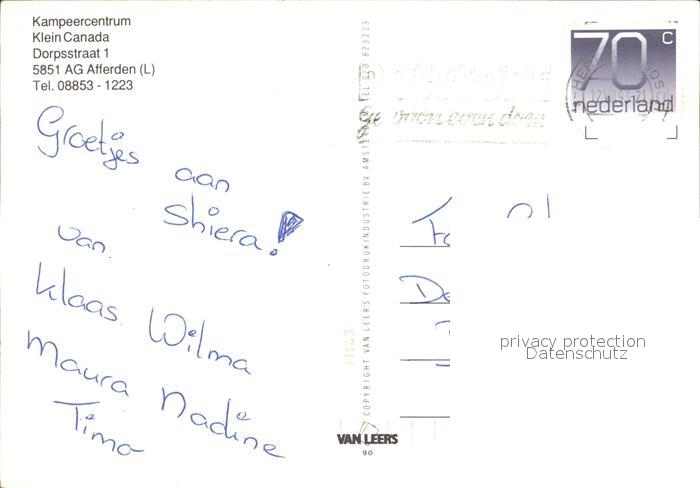 Kampeercentrum
Klein Canada
Dorpsstraat 1
5851 AG Afferden (L)
Tel. 08853 - 1223
Groetjes
aan
Shiera!
van
Klaas Wilma
Maura Nadine
Timo
COPYRIGHT VAN LEER'S FOTODRUKINDUSTRIE BV AMSTERDAM TEL 020-823223
VAN LEERS
90
70 c
nederland
even doen
Fa
De
privacy protection
Datenschutz